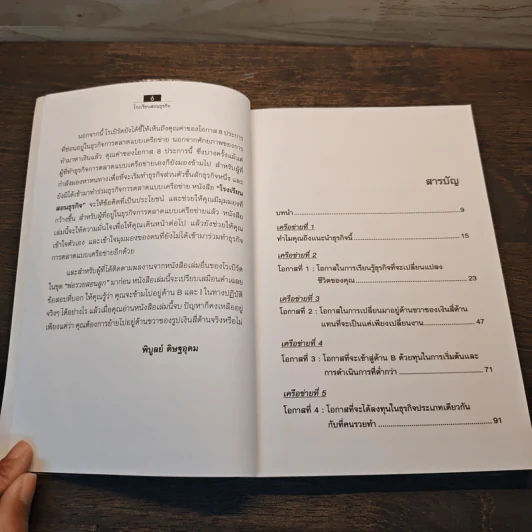 6
โรงเรียนสอนธุรกิจ
นอกจากนี้ โรเบิร์ตยังได้ชี้ให้เห็นถึงคุณค่าของโอกาส 8 ประการ
ที่ซ่อนอยู่ในธุรกิจการตลาดแบบเครือข่าย นอกจากศักยภาพของการ
ทำมาหาเงินแล้ว คุณค่าของโอกาส 8 ประการนี้ ซึ่งบางครั้งแม้แต่
ผู้ที่ทำธุรกิจการตลาดแบบเครือข่ายเองก็ยังมองข้ามไป สำหรับผู้ที่
กำลังมองหาหนทางเพื่อที่จะเริ่มทำธุรกิจส่วนตัวขึ้นสักธุรกิจหนึ่ง และ
ยังมิได้เข้ามาทำร่วมธุรกิจการตลาดแบบเครือข่าย หนังสือ "โรงเรียน
สอนธุรกิจ" จะให้ข้อคิดที่เป็นประโยชน์ และช่วยให้คุณมีมุมมองที่
กว้างขึ้น สำหรับผู้ที่อยู่ในธุรกิจการตลาดแบบเครือข่ายแล้ว หนังสือ
เล่มนี้จะให้ความมั่นใจเพื่อให้คุณเดินหน้าต่อไป แล้วยังช่วยให้คุณ
เข้าใจตัวเอง และเข้าใจมุมมองของคนที่ยังไม่ได้เข้ามาร่วมทำธุรกิจ
การตลาดแบบเครือข่ายอีกด้วย
และสำหรับผู้ที่ได้ติดตามผลงานจากหนังสือเล่มอื่นของโรเบิร์ต
ในชุด "พ่อรวยสอนลูก" มาก่อน หนังสือเล่มนี้จะเปรียบเสมือนคำเฉลย
ข้อสอบที่บอก ให้คุณรู้ว่า คุณจะข้ามไปอยู่ด้าน B และ I ในทางปฏิบัติ
จริงๆ ได้อย่างไร แล้วเมื่อคุณอ่านหนังสือเล่มนี้จบ ปัญหาก็คงเหลืออยู่
เพียงแค่ว่า คุณต้องการย้ายไปอยู่ด้านขวาของรูปเงินสี่ด้านจริงหรือไม่
พิบูลย์ ดิษฐอุดม
สารบัญ
บทนำ 9
เครือข่ายที่ 1
ทำไมคุณถึงแนะนำธุรกิจนี้ 15
เครือข่ายที่ 2
โอกาสที่ 1 : โอกาสในการเรียนรู้ธุรกิจที่จะเปลี่ยนแปลง
ชีวิตของคุณ 23
เครือข่ายที่ 3
โอกาสที่ 2 : โอกาสในการเปลี่ยนมาอยู่ด้านขวาของเงินสี่ด้าน
แทนที่จะเป็นแค่เพียงเปลี่ยนงาน 47
เครือข่ายที่ 4
โอกาสที่ 3 : โอกาสที่จะเข้าสู่ด้าน B ด้วยทุนในการเริ่มต้นและ
การดำเนินการที่ต่ำกว่า 71
เครือข่ายที่ 5
โอกาสที่ 4 : โอกาสที่จะได้ลงทุนในธุรกิจประเภทเดียวกัน
กับที่คนรวยทำ 91